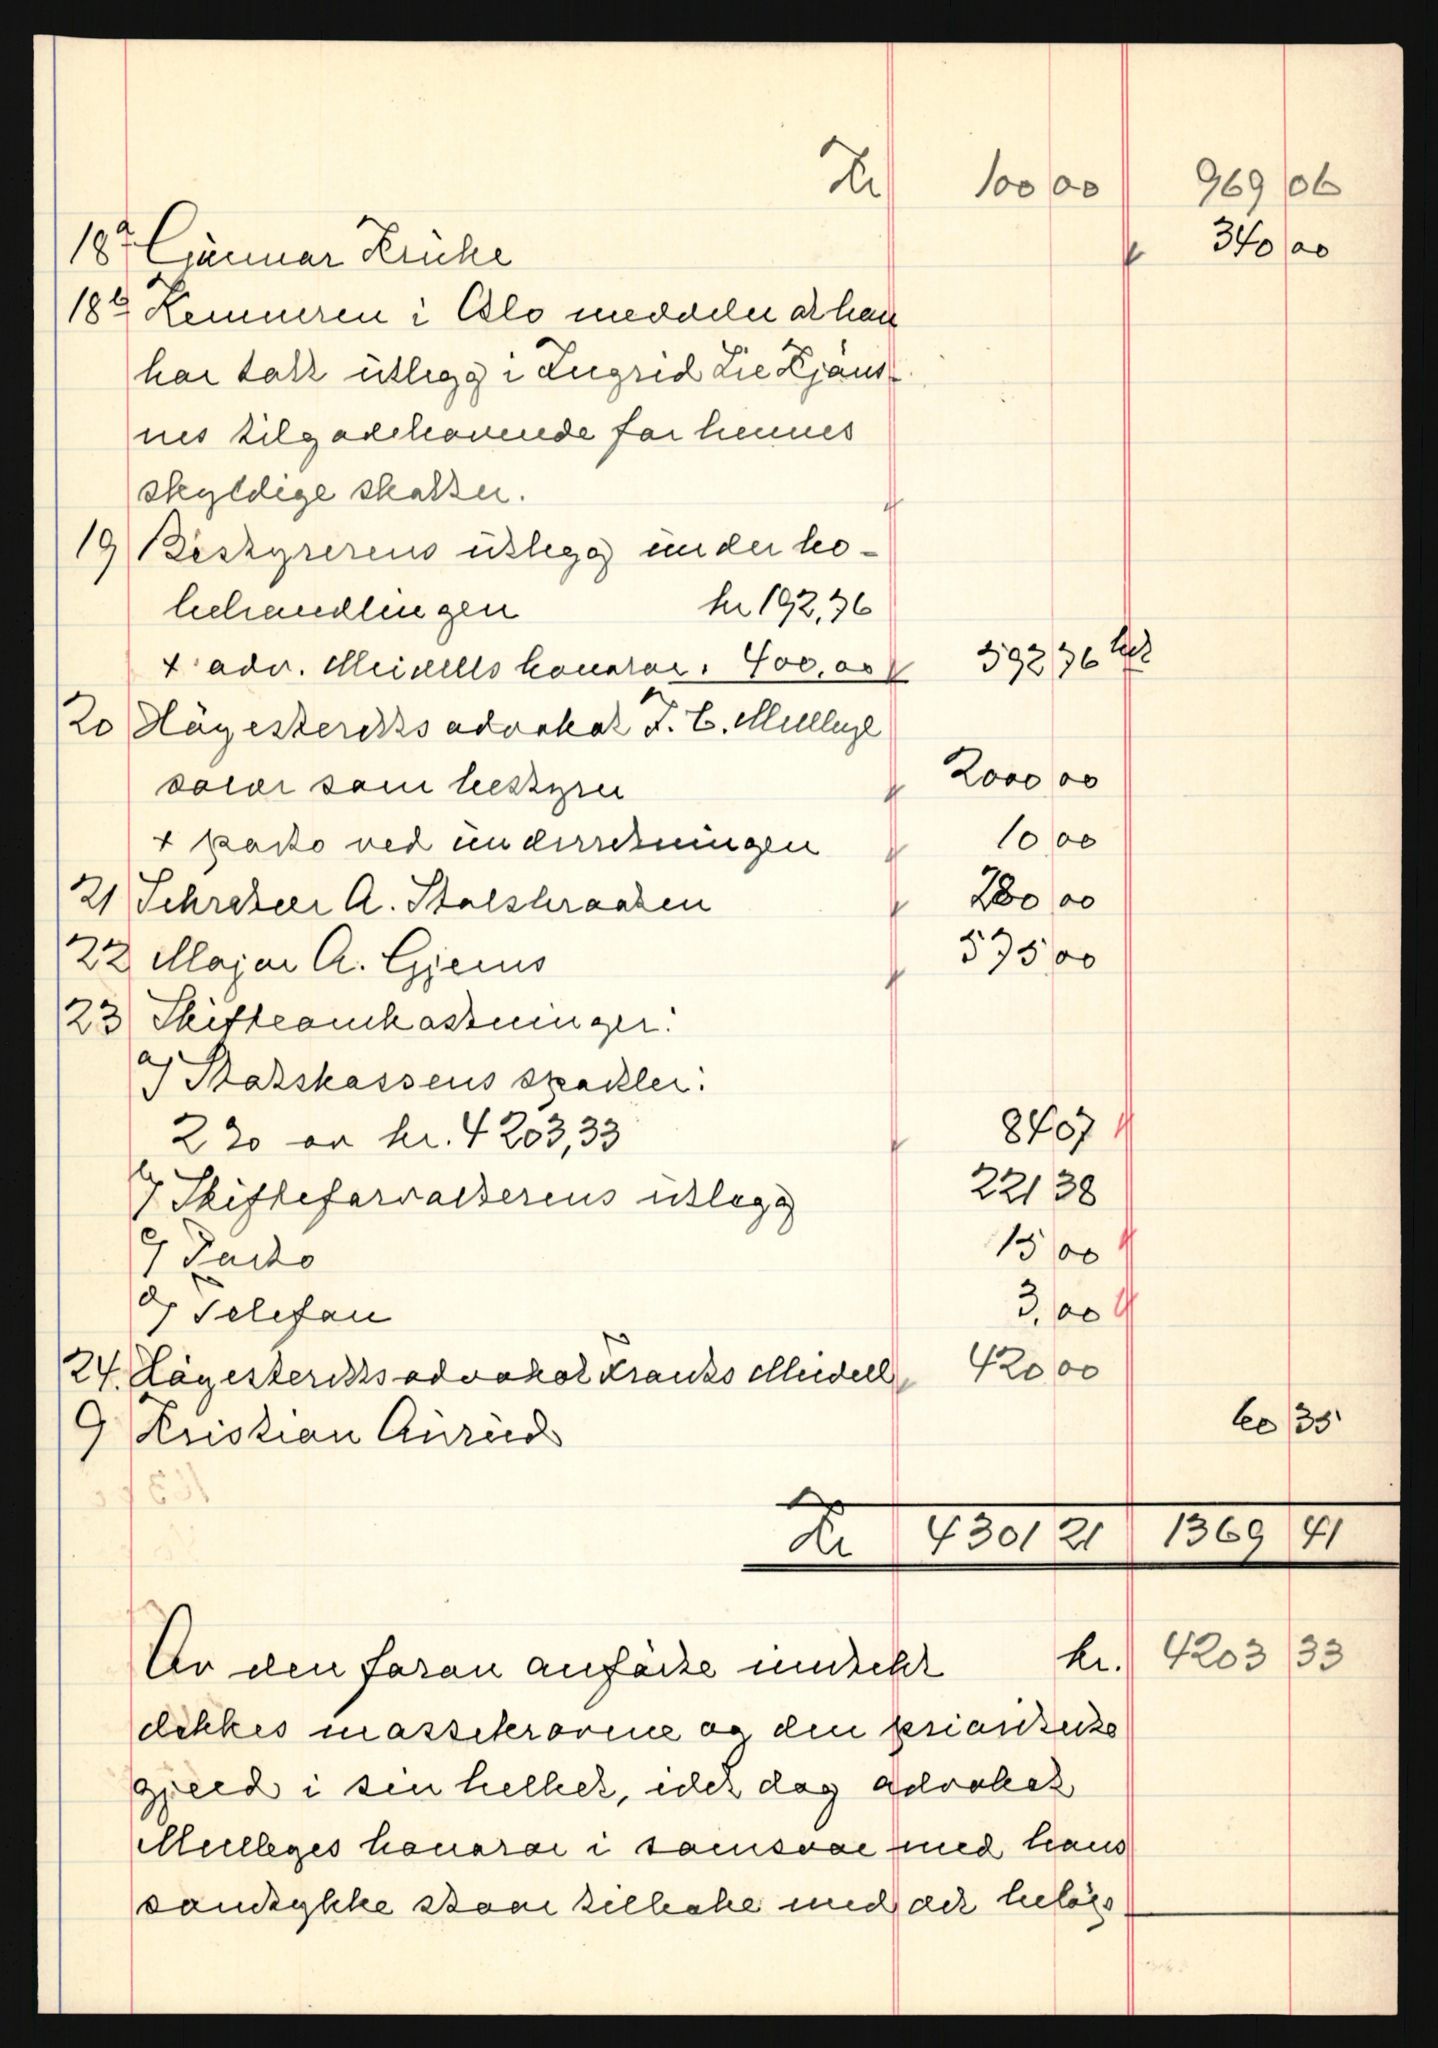 Kr 100 00 969 06
18a Gunnar Krüke 340 00
18b Kemneren i Oslo meddeler at han
har tatt utlegg i Ingrid Lie Kjøns-
nes tilgodehavende for hennes
skyldige skatter.
19 Bestyrerens utlegg under bo-
behandlingen kr 192,76
+ adv. Meidells honorar " 400,00 592 76 bet
20 Høyesterettsadvokat F. C. Mellbye
salær som bestyrer 2000 00
+ porto ved underretningen 10 00
21 Sekretær A. Stalsbraaten 280 00
22 Major A. Gjems 575 00
23 Skifteomkostninger:
a) Statskassens sportler:
2 % av kr. 4203,33 84 07
b) Skifteforvalterens utlegg 221 38
c) Porto 15 00
d) Telefon 3,00
24. Høyesterettsadvokat Frants Meidell 420 00
9 Kristian Aürud 60 35
Kr 4301 21 1369 41
Av den foran anførte inntekt kr. 4203 33
dekkes massekravene og den prioriterte
gjeld i sin helhet, idet dog advokat
honorar i samsvar med hans
samtykke staar tilbake med det beløp